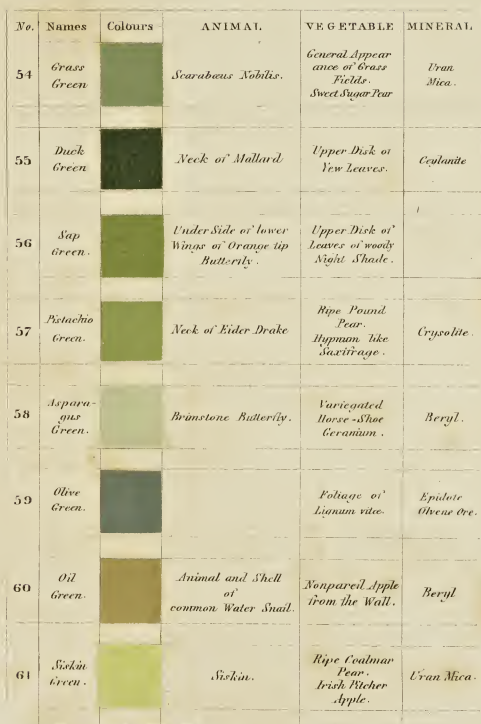 No. Names Colours ANIMAL VEGETABLE MINERAL
54
Grass
Green
Scarabæus Nobilis.
General Appear
ance of Grass
Fields.
Sweet Sugar Pear
Uran
Mica.
55
Duck
Green
Neck of Mallard
Upper Disk of
Yew Leaves.
Ceylanite
56
Sap
Green.
Under Side of lower
Wings of Orange tip
Butterfly.
Upper Disk of
Leaves of woody
Night Shade.
57
Pistachio
Green.
Neck of Eider Drake
Ripe Pound
Pear.
Hypnum like
Saxifrage.
Crysolite.
58
Aspara-
gus
Green.
Brimstone Butterfly.
Variegated
Horse-Shoe
Geranium.
Beryl.
59
Olive
Green.
Foliage of
Lignum vitæ.
Epidote
Olvene Ore.
60
Oil
Green.
Animal and Shell
of
common Water Snail.
Nonpareil Apple
from the Wall.
Beryl
61
Siskin
Green.
Siskin.
Ripe Coalmar
Pear.
Irish Pitcher
Apple.
Uran Mica.